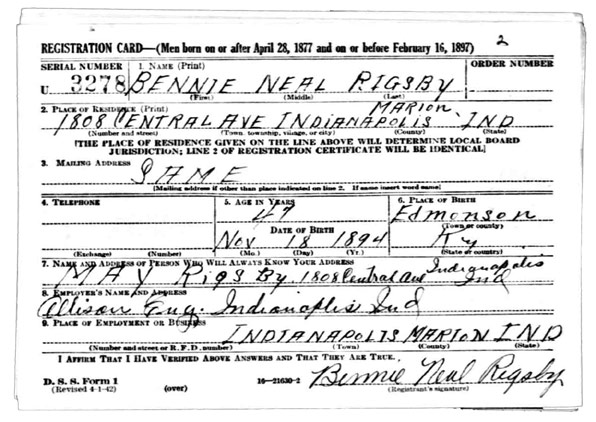 REGISTRATION CARD—(Men born on or after April 28, 1877 and on or before February 16, 1897) 2
SERIAL NUMBER 1. NAME (Print) ORDER NUMBER
U 3278 BENNIE NEAL RIGSBY
(First) (Middle) (Last)
2. PLACE OF RESIDENCE (Print) MARION
1808 CENTRAL AVE INDIANAPOLIS IND
(Number and street) (Town, township, village, or city) (County) (State)
[THE PLACE OF RESIDENCE GIVEN ON THE LINE ABOVE WILL DETERMINE LOCAL BOARD
JURISDICTION; LINE 2 OF REGISTRATION CERTIFICATE WILL BE IDENTICAL]
3. MAILING ADDRESS
SAME
[Mailing address if other than place indicated on line 2. If same insert word same]
4. TELEPHONE 5. AGE IN YEARS 6. PLACE OF BIRTH
47 Edmonson
DATE OF BIRTH (Town or county)
Nov 18 1894 Ky.
(Exchange) (Number) (Mo.) (Day) (Yr.) (State or country)
7. NAME AND ADDRESS OF PERSON WHO WILL ALWAYS KNOW YOUR ADDRESS
MAY RigsBy 1808 Central Ave Indianapolis Ind
8. EMPLOYER'S NAME AND ADDRESS
Allison Eng. Indianaplis Ind
9. PLACE OF EMPLOYMENT OR BUSINESS
INDIANAPOLIS MARION IND
(Number and street or R. F. D. number) (Town) (County) (State)
I AFFIRM THAT I HAVE VERIFIED ABOVE ANSWERS AND THAT THEY ARE TRUE.
D. S. S. Form 1 Bennie Neal Rigsby
(Revised 4-1-42) (over) 16—21630-2 (Registrant's signature)